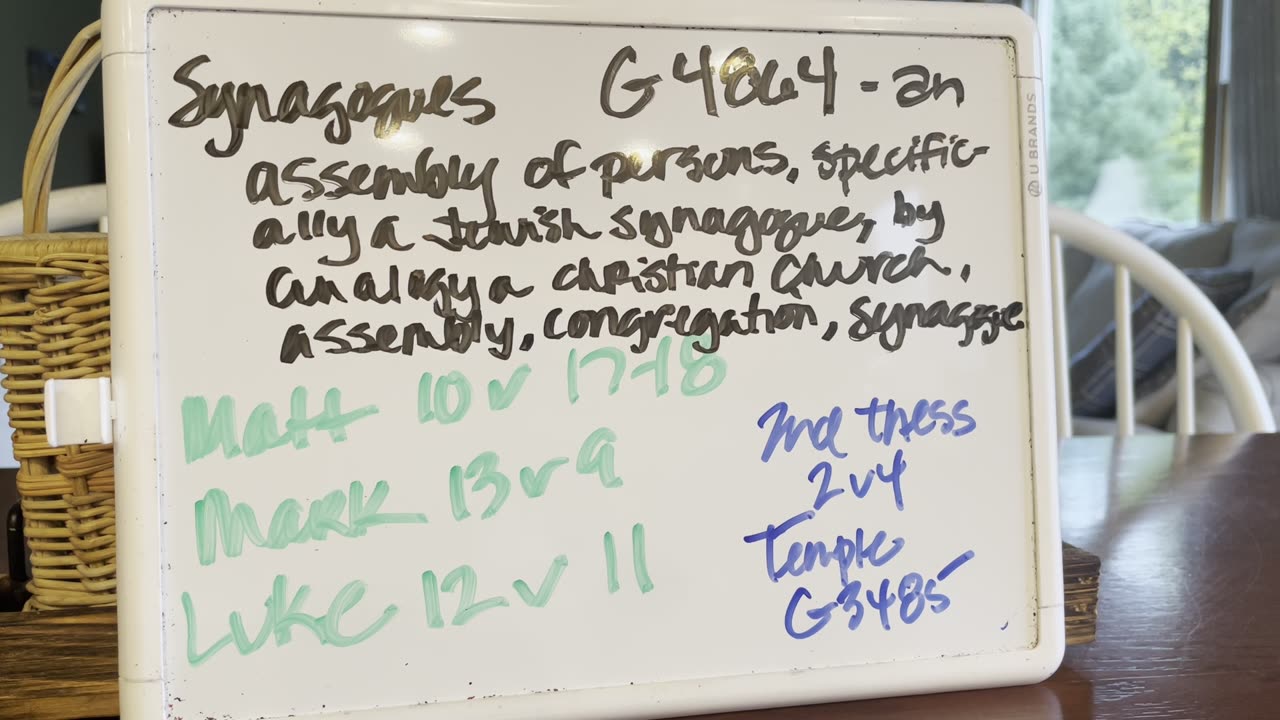 Synagogues G4864 - an
assembly of persons, specific-
ally a Jewish synagogue, by
analogy a christian church,
assembly, congregation, synagoge
Matt 10 v 17-18
Mark 13 v 9
Luke 12 v 11
2nd thess
2v4
Temple
G3485
U BRANDS